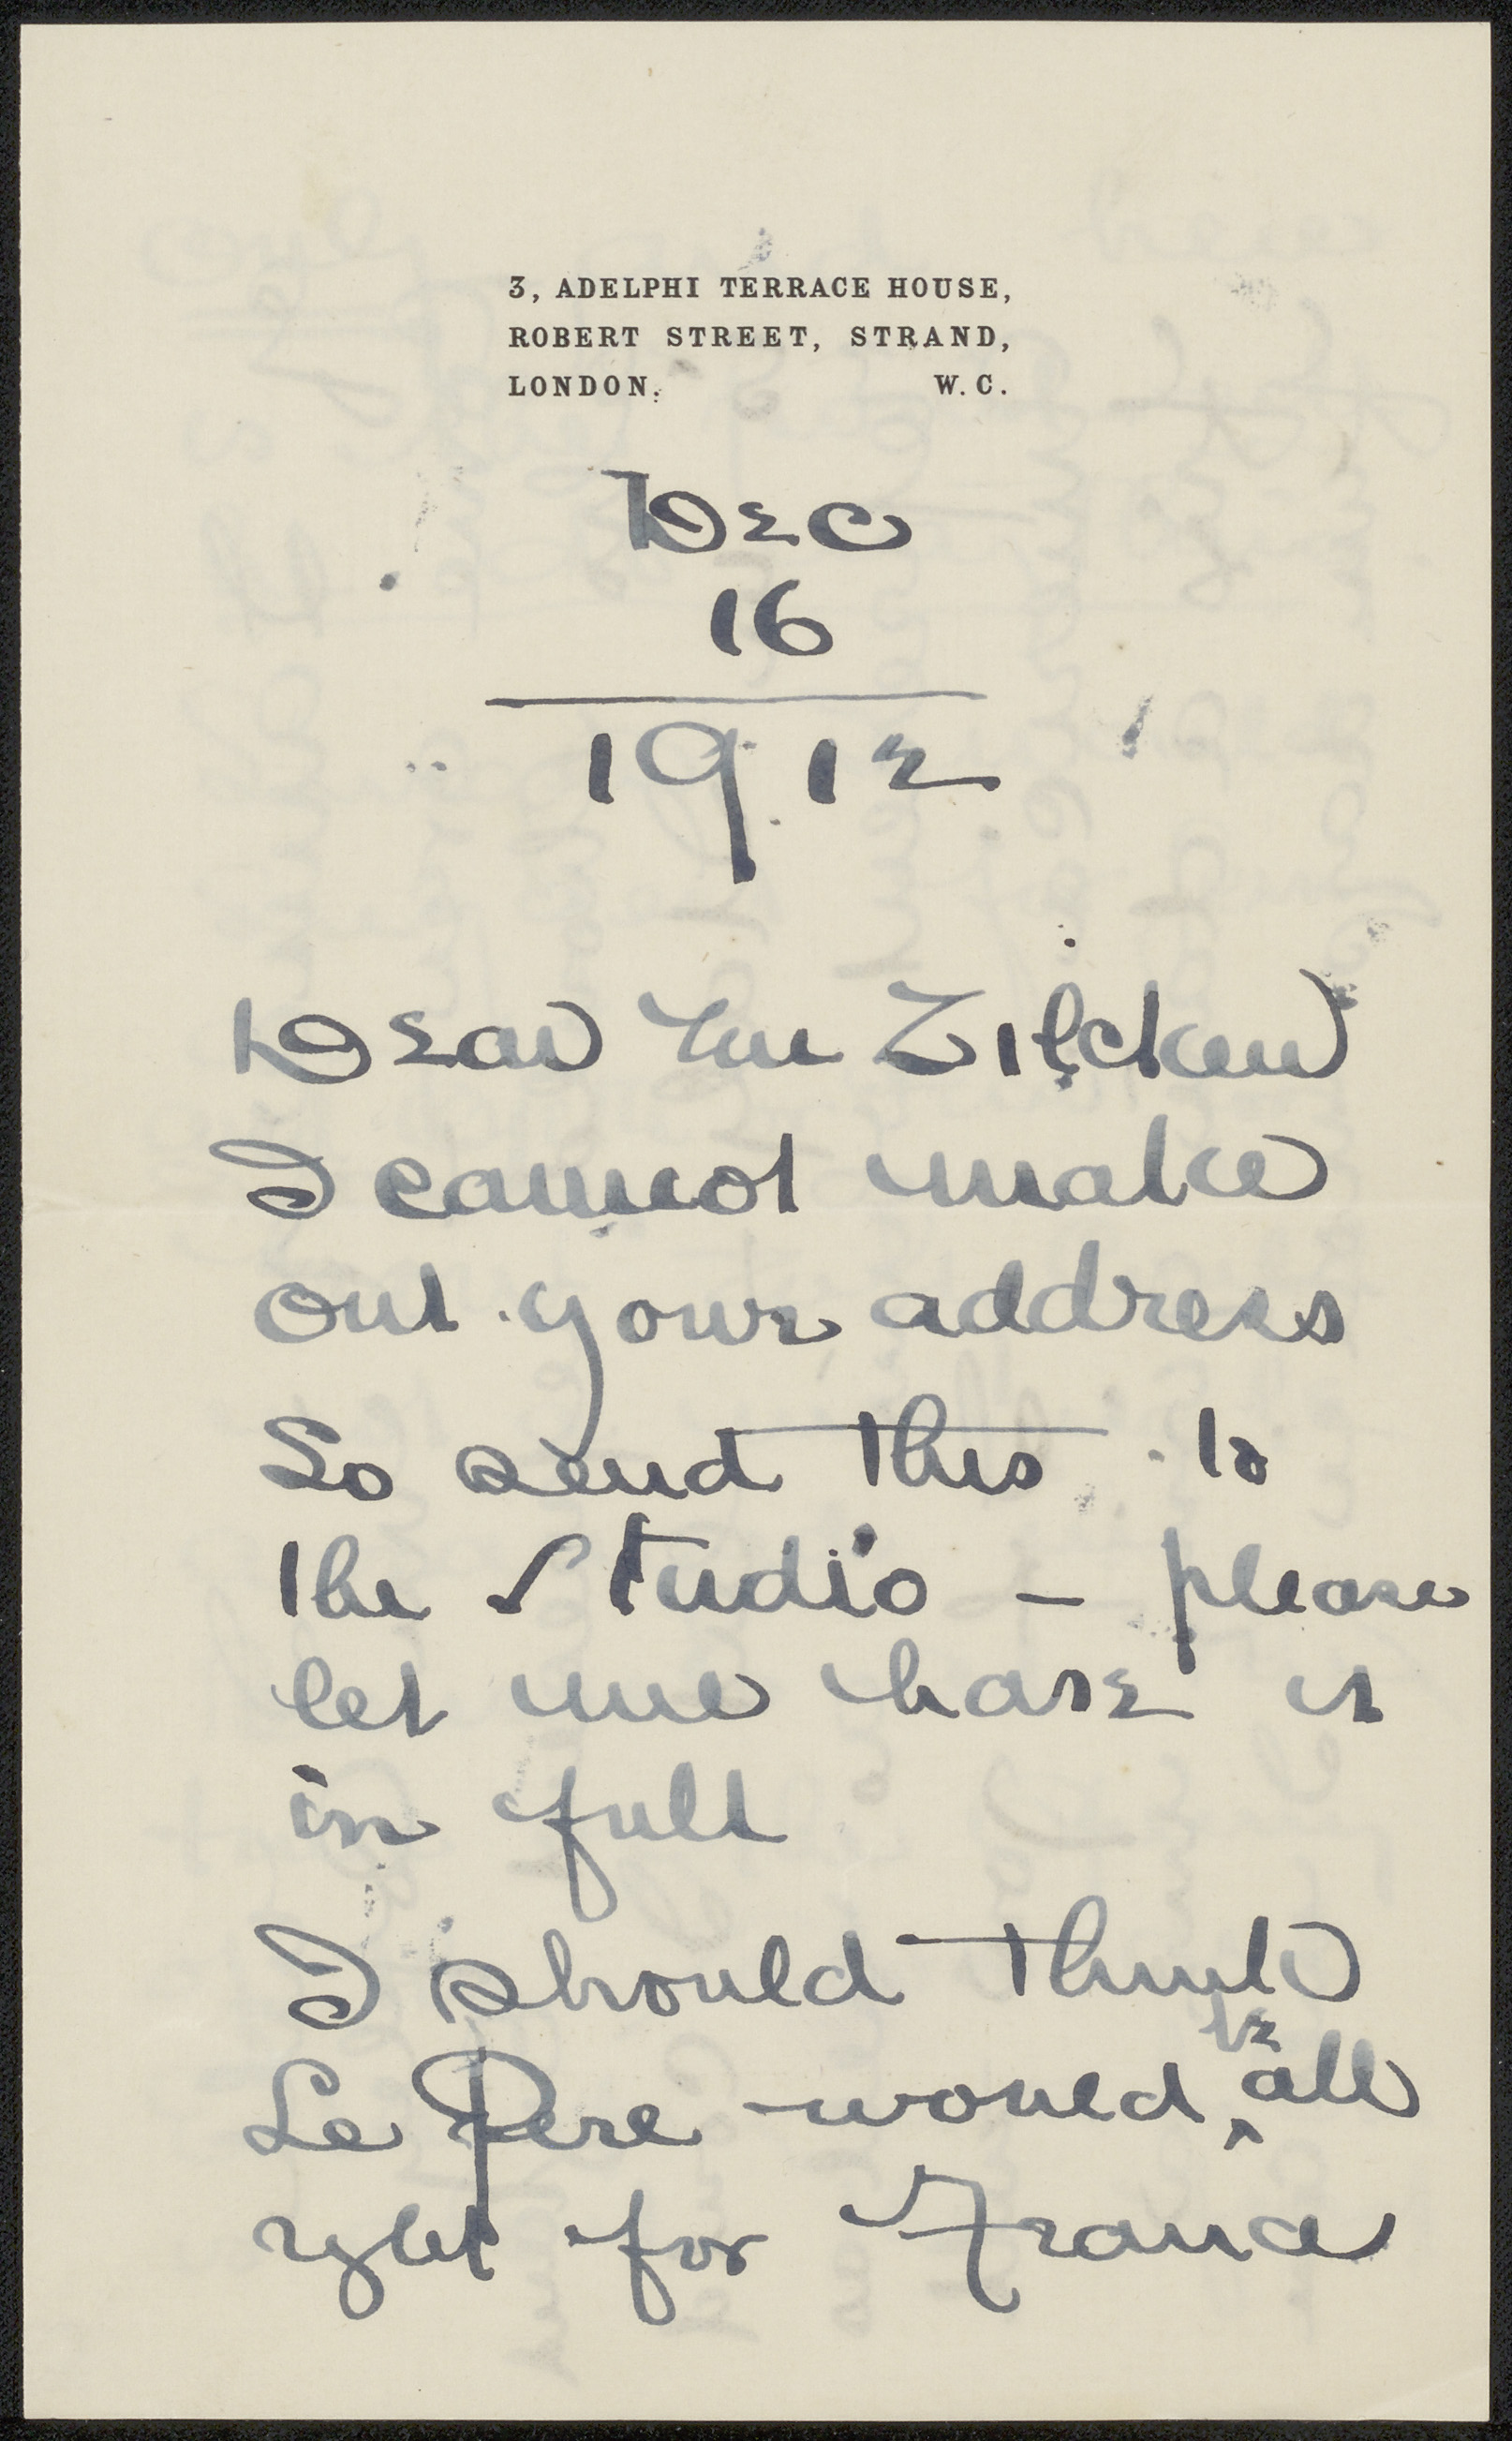 3, ADELPHI TERRACE HOUSE,
ROBERT STREET, STRAND,
LONDON. W.C.
Dec
16
1912
Dear Mr Zilcken
I cannot make
out your address
So send this to
the Studio - please
let me have it
in full
I should think
Le Pere would be all
right for France